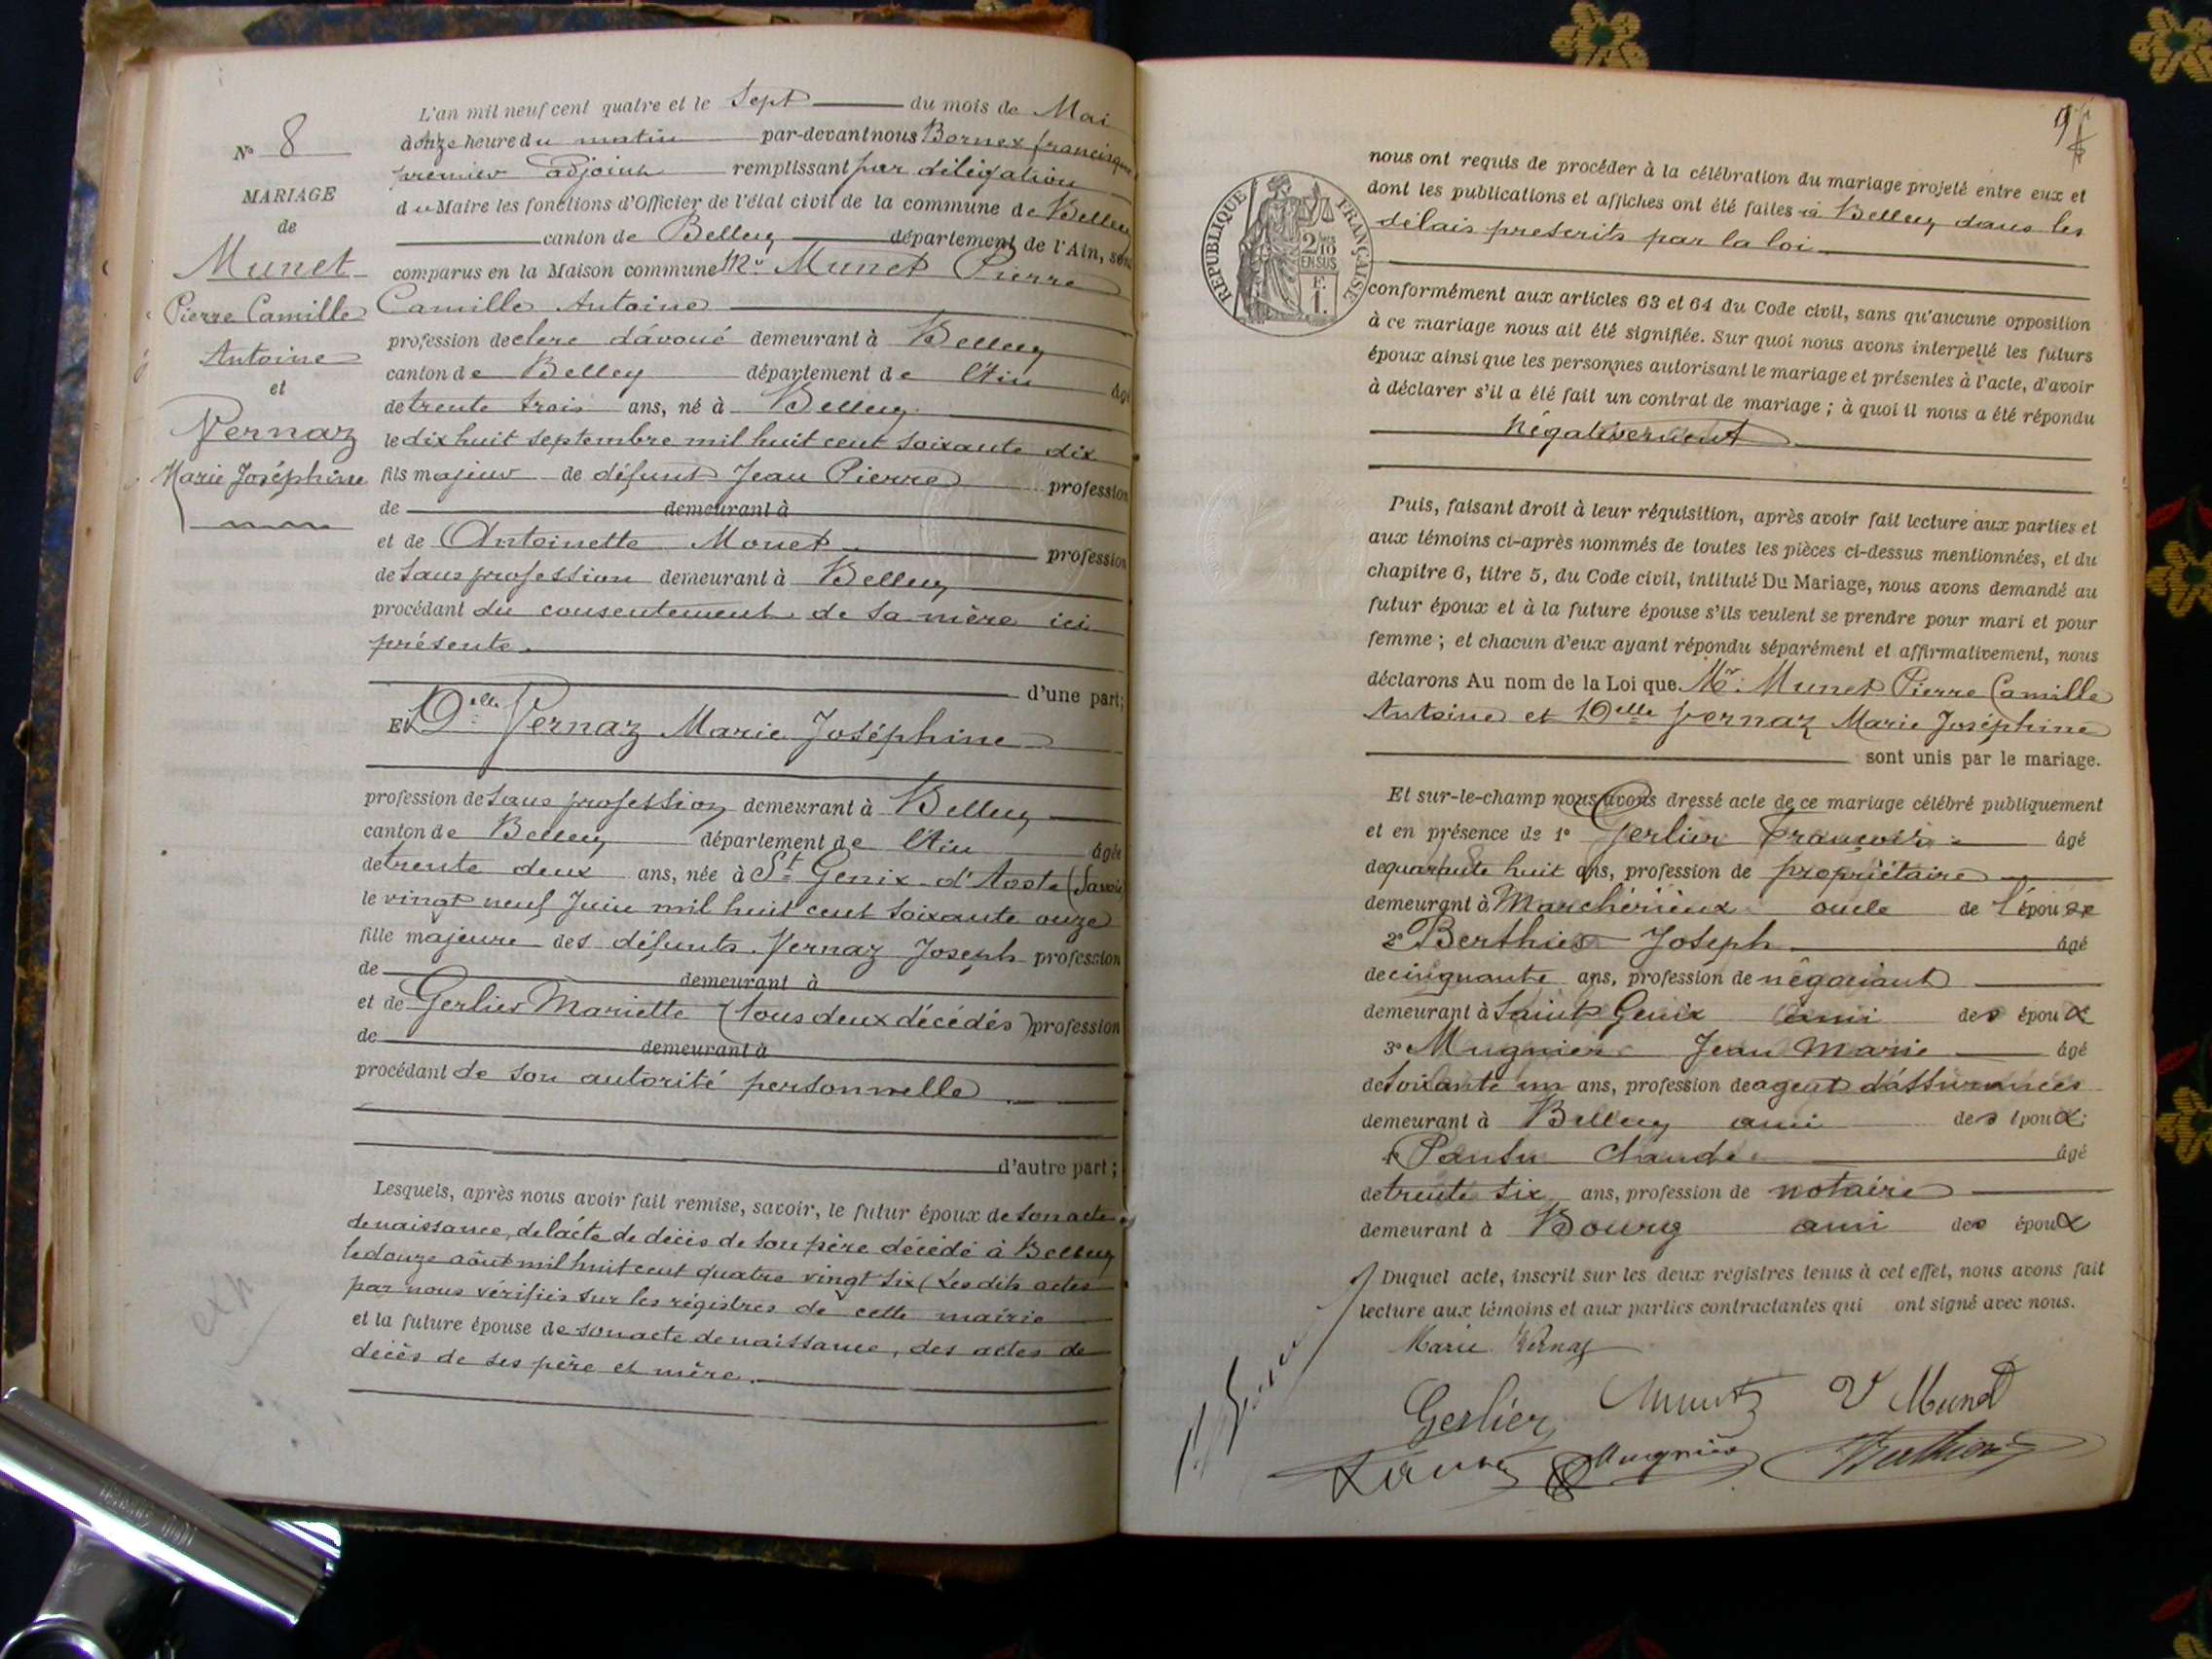 N° 8
MARIAGE
de
Munet
Pierre Camille
Antoine
et
Vernaz
Marie Joséphine
L'an mil neuf cent quatre et le sept du mois de Mai
à onze heure du matin par-devant nous Bornex francisque
premier adjoint remplissant par délégation
du Maire les fonctions d'Officier de l'état civil de la commune de Belley
canton de Belley département de l'Ain, sont
comparus en la Maison commune Mr Munet Pierre
Camille Antoine
profession de clerc d'avoué demeurant à Belley
canton de Belley département de l'Ain âgé
de trente trois ans, né à Belley
le dix huit septembre mil huit cent soixante dix
fils majeur de défunt Jean Pierre profession
de demeurant à
et de Antoinette Monet profession
de sans profession demeurant à Belley
procédant du consentement de sa mère ici
présente.
d'une part;
Et Delle Vernaz Marie Joséphine
profession de sans profession demeurant à Belley
canton de Belley département de l'Ain âgée
de trente deux ans, née à St Genix-d'Aoste (Savoie)
le vingt neuf Juin mil huit cent soixante onze
fille majeure des défunts Vernaz Joseph profession
de demeurant à
et de Gerlier Mariette (tous deux décédés) profession
de demeurant à
procédant de son autorité personnelle
d'autre part;
Lesquels, après nous avoir fait remise, savoir, le futur époux de son acte
de naissance, de l'acte de décès de son père décédé à Belley
le douze août mil huit cent quatre vingt six (Les dits actes
par nous vérifiés sur les régistres de cette mairie
et la future épouse de son acte de naissance, des actes de
décès de ses père et mère.
9
RÉPUBLIQUE FRANÇAISE
2/10
EN SUS
F.
1.
nous ont requis de procéder à la célébration du mariage projeté entre eux et
dont les publications et affiches ont été faites à Belley dans les
délais prescrits par la loi
conformément aux articles 63 et 64 du Code civil, sans qu'aucune opposition
à ce mariage nous ait été signifiée. Sur quoi nous avons interpellé les futurs
époux ainsi que les personnes autorisant le mariage et présentes à l'acte, d'avoir
à déclarer s'il a été fait un contrat de mariage ; à quoi il nous a été répondu
négativement
Puis, faisant droit à leur réquisition, après avoir fait lecture aux parties et
aux témoins ci-après nommés de toutes les pièces ci-dessus mentionnées, et du
chapitre 6, titre 5, du Code civil, intitulé Du Mariage, nous avons demandé au
futur époux et à la future épouse s'ils veulent se prendre pour mari et pour
femme ; et chacun d'eux ayant répondu séparément et affirmativement, nous
déclarons Au nom de la Loi que Mr. Munet Pierre Camille
Antoine et Delle Vernaz Marie Joséphine
sont unis par le mariage.
Et sur-le-champ nous avons dressé acte de ce mariage célébré publiquement
et en présence de 1° Gerlier François âgé
de quarante huit ans, profession de propriétaire
demeurant à oncle de l'épouse
2° Berthier Joseph âgé
de cinquante ans, profession de négociant
demeurant à Saint Genix ami des époux
3° Mugnier Jean Marie âgé
de soixante un ans, profession de agent d'assurances
demeurant à Belley ami des époux
4° Pansu Claude âgé
de trente six ans, profession de notaire
demeurant à Bourg ami des époux
Duquel acte, inscrit sur les deux registres tenus à cet effet, nous avons fait
lecture aux témoins et aux parties contractantes qui ont signé avec nous.
Marie Vernaz
Gerlier Munet V Munet
Mugnier Berthier